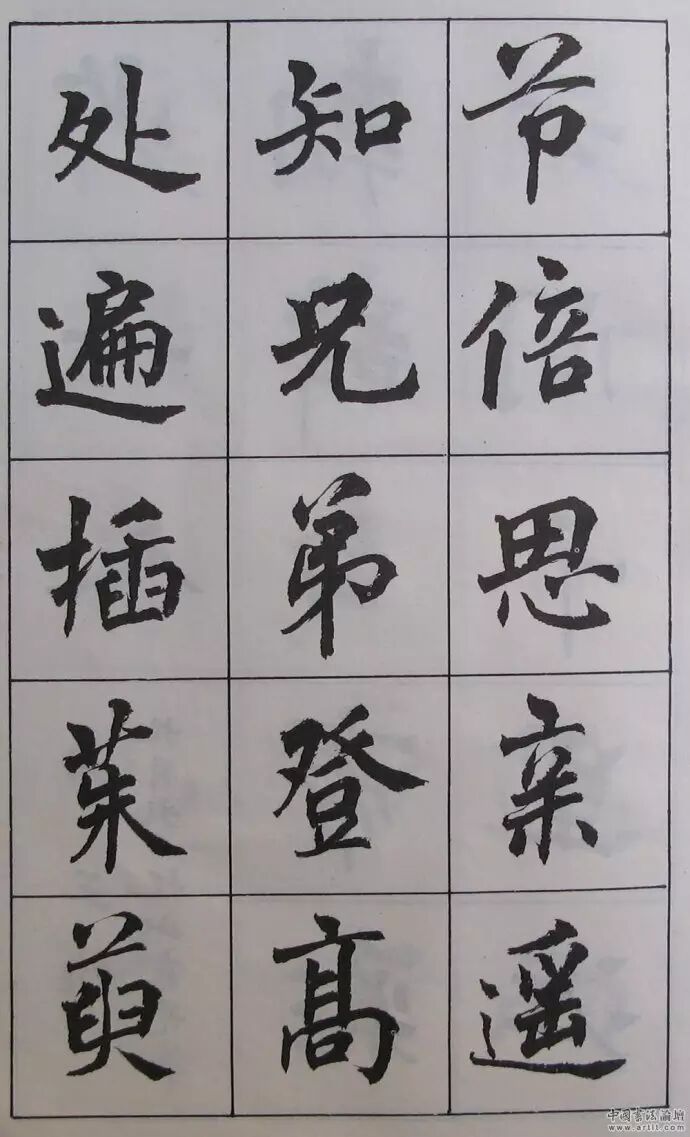 节倍思亲遥
知兄弟登高
处遍插茱萸
中国书法论坛
www.artit.com